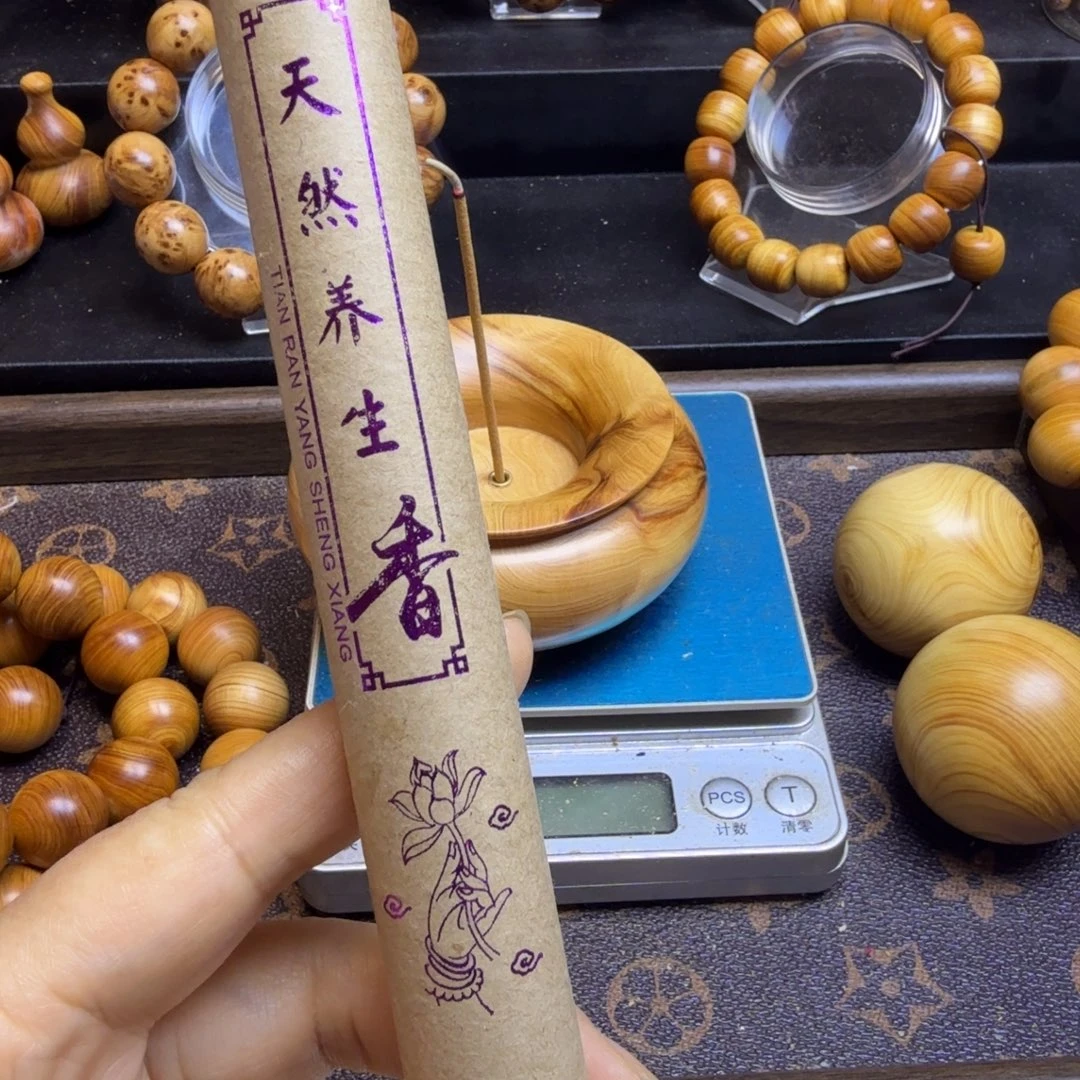 天然养生香
TIAN RAN YANG SHENG XIANG
PCS
计数
T
清零